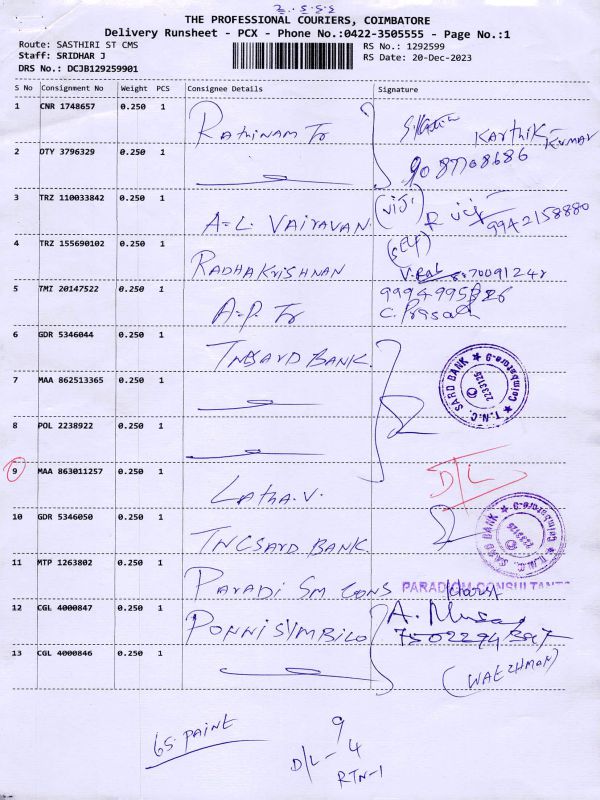 THE PROFESSIONAL COURIERS, COIMBATORE
Delivery Runsheet - PCX - Phone No.:0422-3505555 - Page No.:1
Route: SASTHIRI ST CMS
RS No.: 1292599
Staff: SRIDHAR J
RS Date: 20-Dec-2023
DRS No.: DCJB129259901
S No Consignment No Weight PCS Consignee Details Signature
1 CNR 1748657 0.250 1
Rathinam Tr
Karthik Kumar
2 DTY 3796329 0.250 1
9087708686
3 TRZ 110033842 0.250 1
A.L. VAIRAVAN (VIJI)
9942158880
4 TRZ 155690102 0.250 1
RADHAKRISHNAN (Self)
5 TMI 20147522 0.250 1
A.P. Tr C. Prasath
6 GDR 5346044 0.250 1
TNCSARD BANK
T.N.C. SARD BANK ★ Coimbatore-9 ★
2233125
7 MAA 862513365 0.250 1
8 POL 2238922 0.250 1
9 MAA 863011257 0.250 1
D/L
Latha.V.
10 GDR 5346050 0.250 1
TNCSARD BANK
T.N.C. SARD BANK ★ Coimbatore-9 ★
2233125
11 MTP 1263802 0.250 1
PARADISM CONS PARADIGM CONSULTANTS
12 CGL 4000847 0.250 1
PONNI SYMBILO
13 CGL 4000846 0.250 1
(WATCHMAN)
65. PAINT
9
D/L - 4
RTN-1